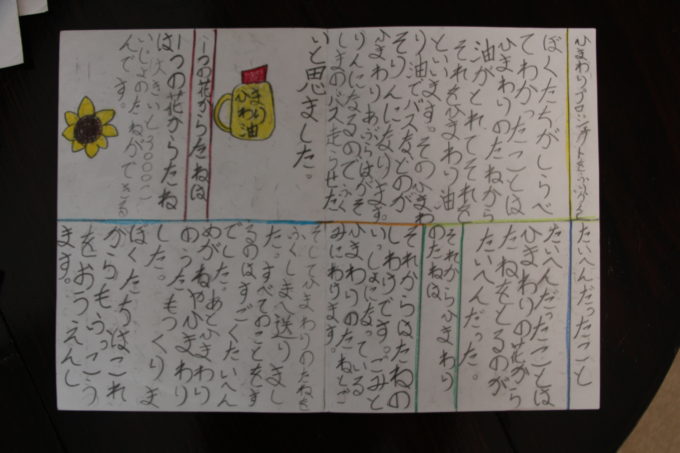 ひまわりプロジェクトをふりかえる
ぼくたちがしらべ
てわかったことは
ひまわりのたねから
油がとれてそれを
それをひまわり油
といいます。そのひまわ
り油でバスなどのが
そりんになります。
ひまわりあぶらはがそ
りんになるのでふく
しまのバス走らせた
いと思ました。
ひまわり油
一つの花からたねは
一つの花からたね
は大きいと3000こ
いじょうのたねができる
んです。
たいへんだったこと
たいへんだったことは
ひまわりの花から
たねをとるのが
たいへんだった。
それからひまわり
のたねは
それからはたねの
しわけです。ごみと
いっしょになっている
ひまわりのたねとご
みにわけます。
そしてひまわりのたねを
ふくしまへ送りまし
た。すべてのことをす
るのはすごくたいへん
でした。あとひまわり
めがねやひまわり
のうたもつくりま
した。
ぼくたちはこれ
からもふっこう
をおうえんし
ます。